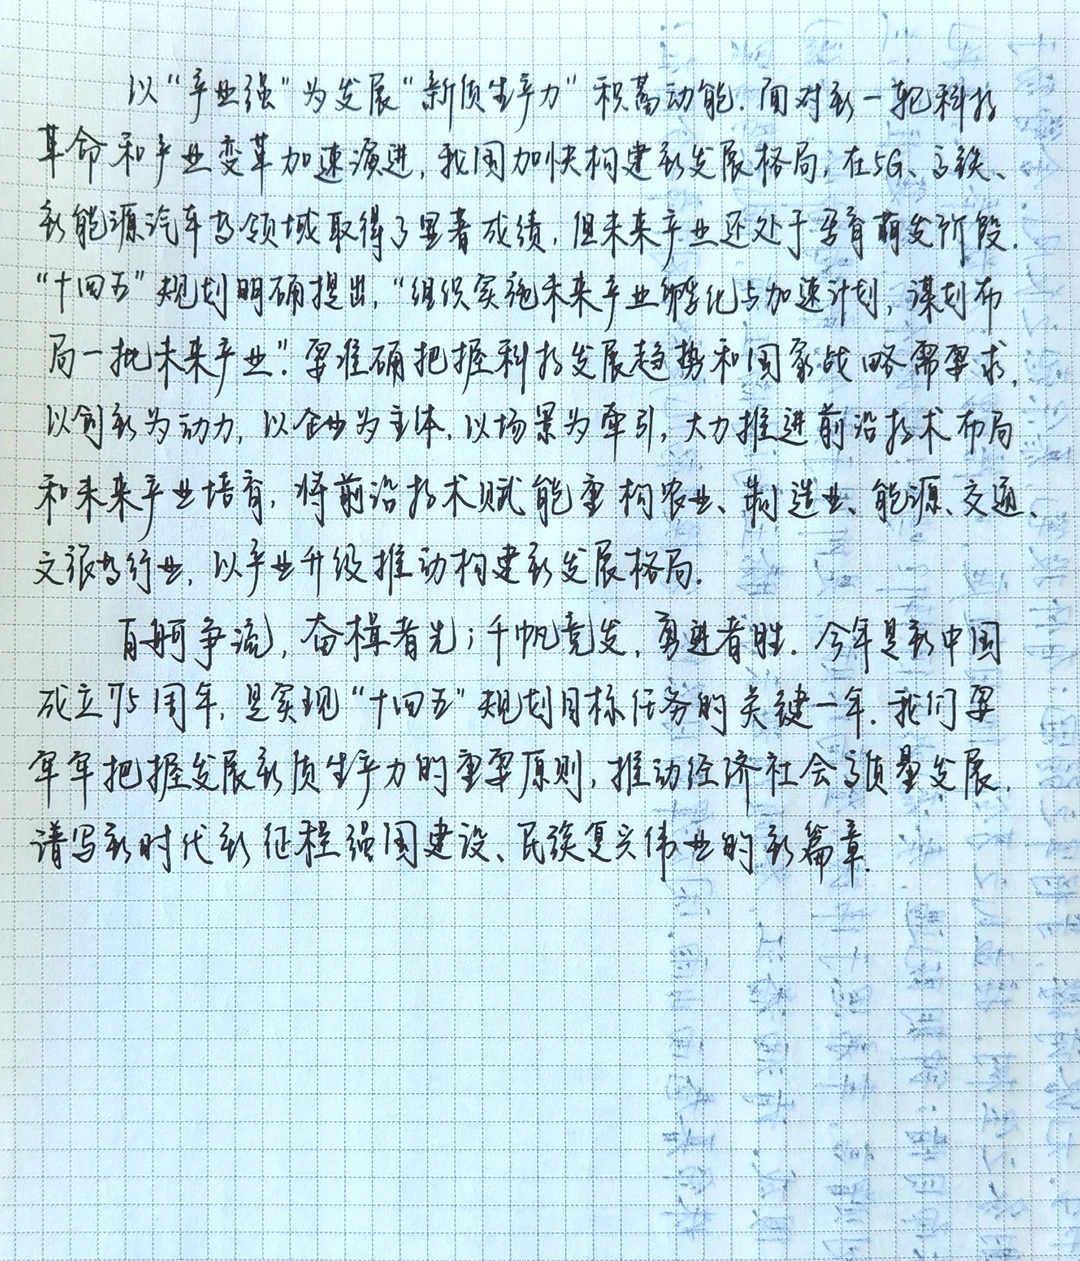 以“产业强”为发展“新质生产力”积蓄动能。面对新一轮科技
革命和产业变革加速演进，我国加快构建新发展格局，在5G、高铁、
新能源汽车等领域取得了显著成绩，但未来产业还处于孕育萌发阶段。
“十四五”规划明确提出，“组织实施未来产业孵化与加速计划，谋划布
局一批未来产业”。要准确把握科技发展趋势和国家战略需要求，
以创新为动力，以企业为主体，以场景为牵引，大力推进前沿技术布局
和未来产业培育，将前沿技术赋能重构农业、制造业、能源、交通、
文旅等行业，以产业升级推动构建新发展格局。
百舸争流，奋楫者先；千帆竞发，勇进者胜。今年是新中国
成立75周年，是实现“十四五”规划目标任务的关键一年。我们要
牢牢把握发展新质生产力的重要原则，推动经济社会高质量发展，
谱写新时代新征程强国建设、民族复兴伟业的新篇章。